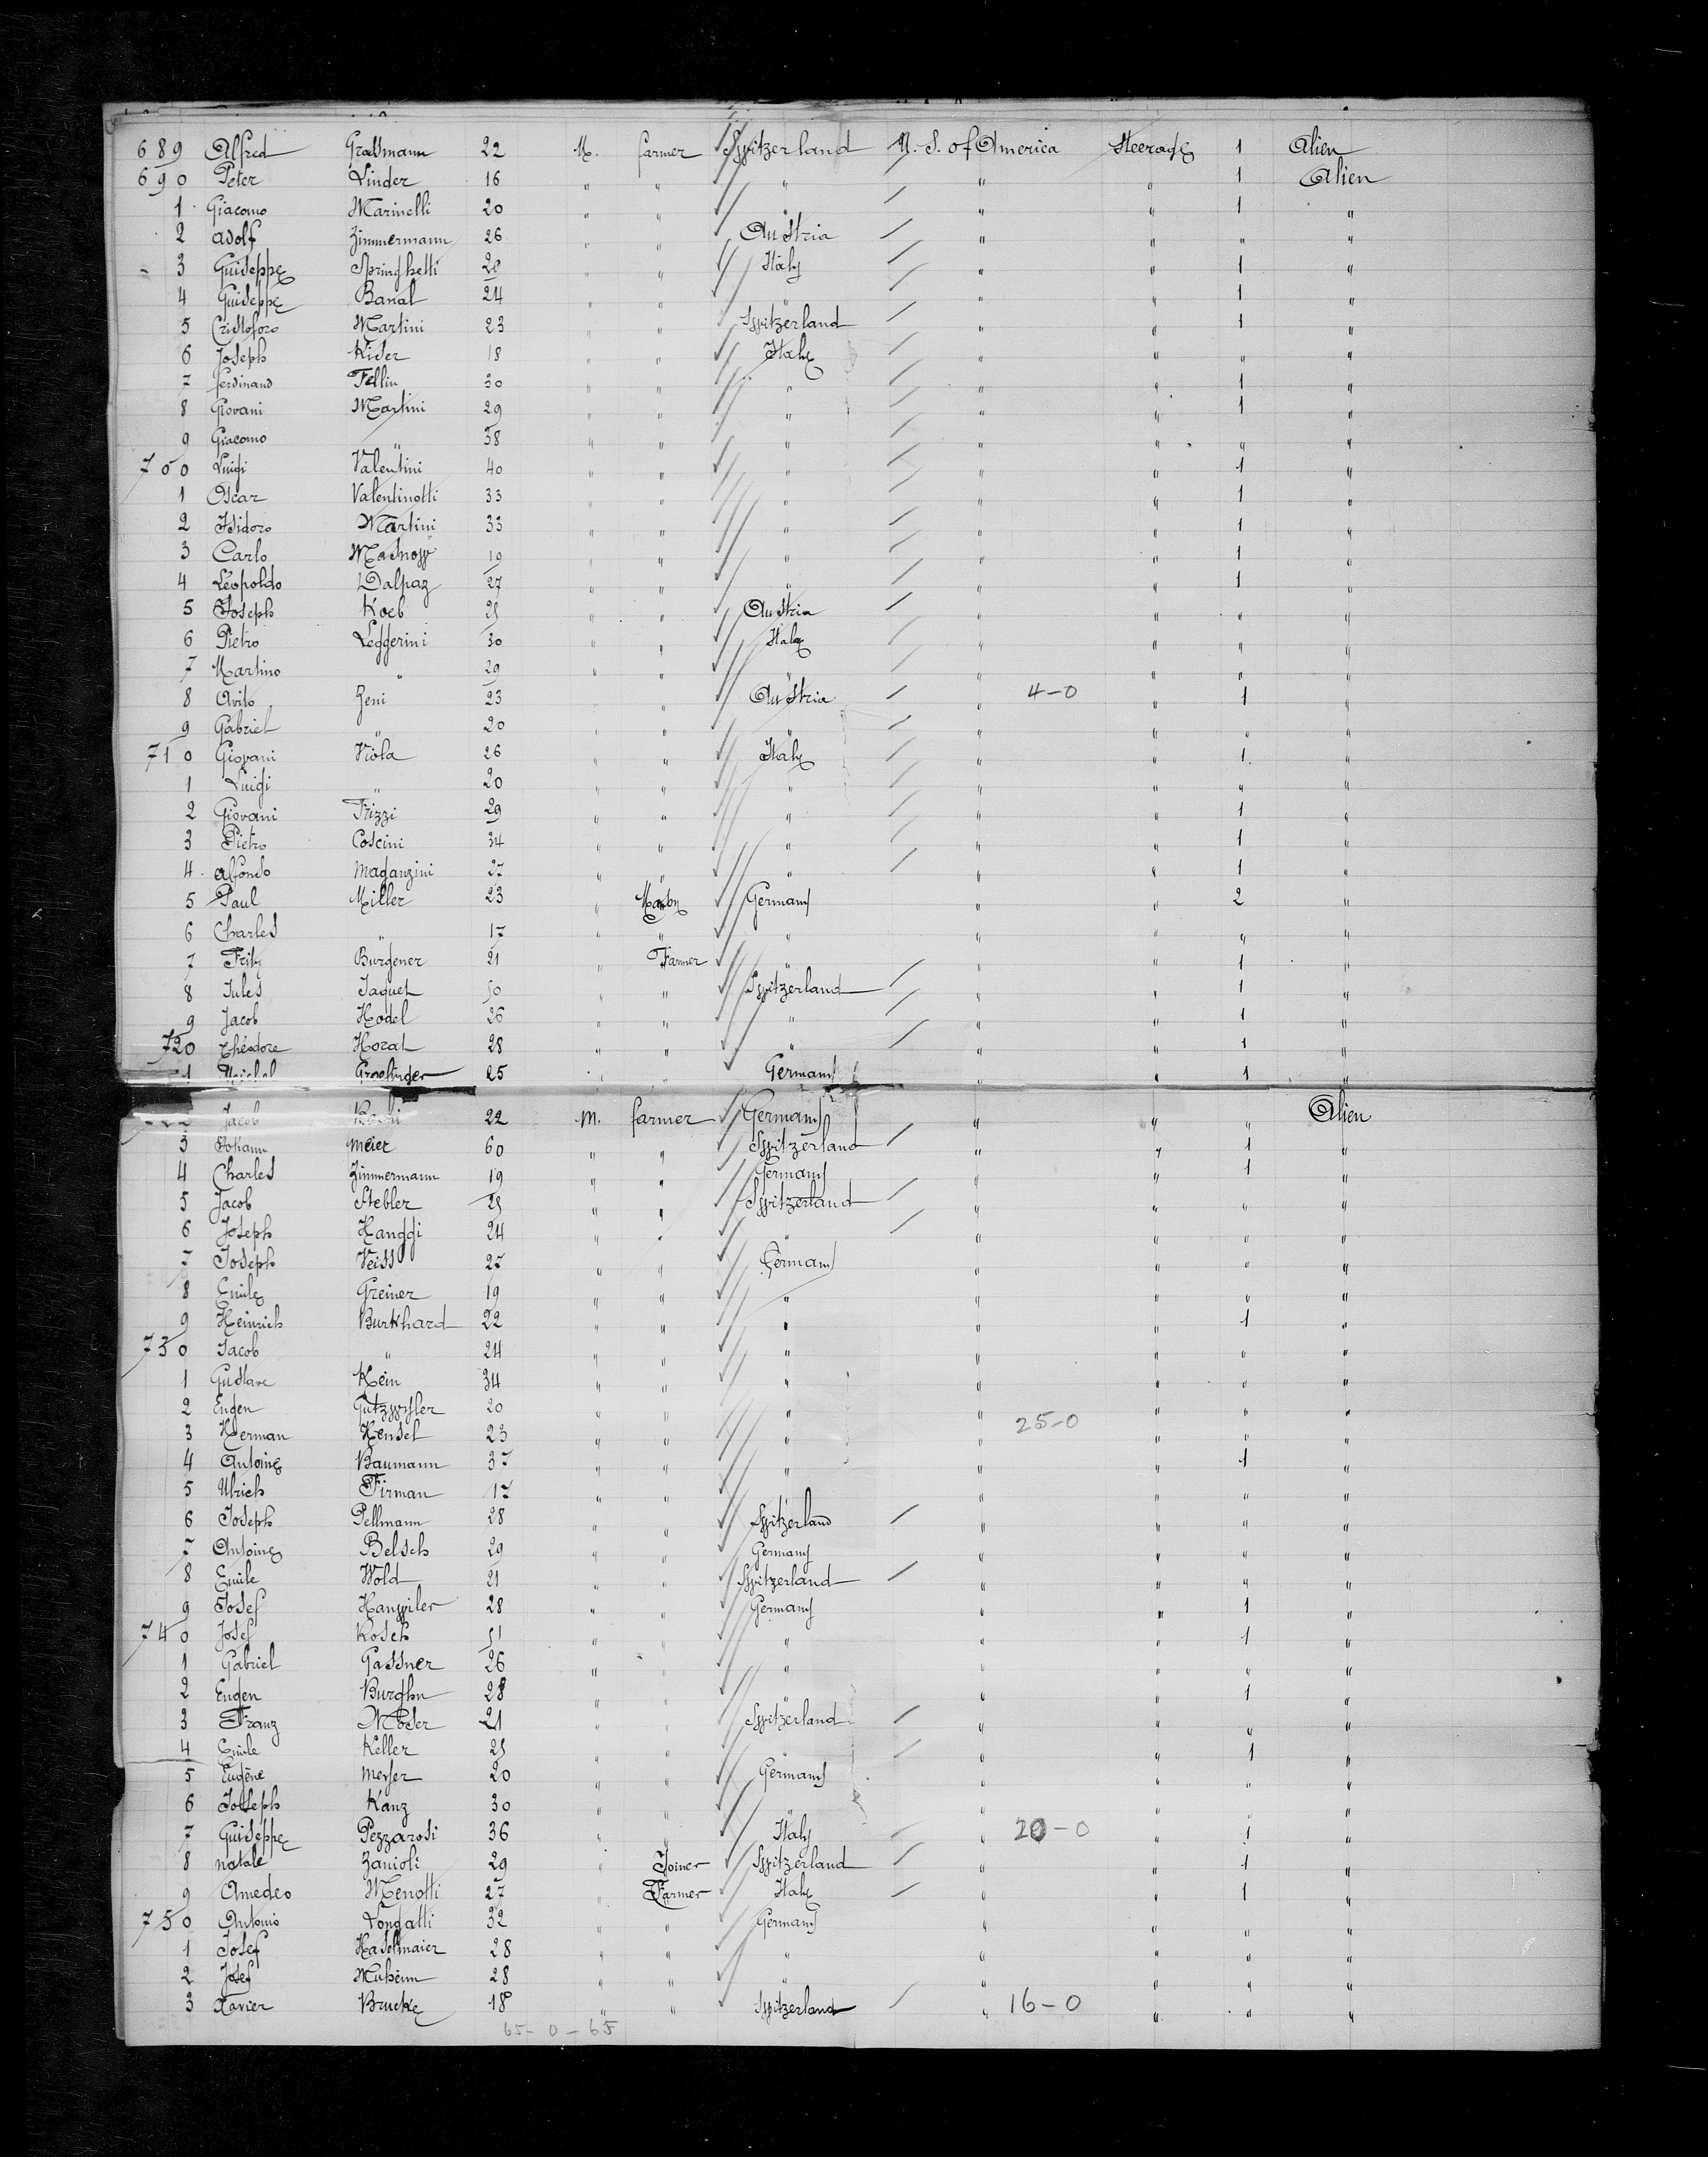 689 Alfred Grassmann 22 M. farmer Switzerland U. S. of America Steerage 1 Alien
690 Peter Linder 16 " " " " " 1 Alien
1 Giacomo Marinelli 20 " " " " " 1 "
2 Adolf Zimmermann 26 " " Austria " " " "
3 Guiseppe Springhetti 20 " " Italy " " 1 "
4 Guiseppe Banal 24 " " " " " 1 "
5 Cristoforo Martini 23 " " Switzerland " " 1 "
6 Joseph Kider 18 " " Italy " " " "
7 ferdinand Fellin 30 " " " " " 1 "
8 Giovani Martini 29 " " " " " 1 "
9 Giacomo " 38 " " " " " " "
700 Luigi Valentini 40 " " " " " 1 "
1 Oscar Valentinotti 33 " " " " " 1 "
2 Isidoro Martini 33 " " " " " 1 "
3 Carlo 19 " " " " " 1 "
4 Léopoldo Dalpaz 27 " " " " " 1 "
5 Joseph Koeb 25 " " Austria " " " "
6 Pietro Leggerini 30 " " Italy " " " "
7 Martino " 29 " " " " " " "
8 Avito Zeni 23 " " Austria " 4-0 " 1 "
9 Gabriel " 20 " " " " " " "
710 Giovani Viola 26 " " Italy " " 1 "
1 Luigi " 20 " " " " " " "
2 Giovani Frizzi 29 " " " " " 1 "
3 Pietro Coscini 34 " " " " " 1 "
4 Alfondo Maganzini 27 " " " " " 1 "
5 Paul Miller 23 " Germany " " 2 "
6 Charles " 17 " " " " " " "
7 Fritz Burgener 21 " Farmer " " " 1 "
8 Jules Jaquet 50 " " Switzerland " " 1 "
9 Jacob Hodel 26 " " " " " 1 "
720 Théodore Horat 28 " " " " " 1 "
1 25 " " Germany " " 1 "
Jacob 22 M. farmer Germany " " " Alien
3 Johann Meier 60 " " Switzerland " " 1 "
4 Charles Zimmermann 19 " " Germany " " 1 "
5 Jacob Stebler 25 " " Switzerland " " " "
6 Joseph Hanggi 24 " " " " " " "
7 Joseph Veiss 27 " " Germany " " " "
8 Emile Greiner 19 " " " " " " "
9 Heinrich Burkhard 22 " " " " " 1 "
730 Jacob " 24 " " " " " " "
1 Gustave Kein 34 " " " " " " "
2 Eugen Gutzwyler 20 " " " " " " "
3 Herman Hensel 23 " " " " 25-0 " " "
4 Antoine Baumann 37 " " " " " 1 "
5 Ulrich Firman 17 " " " " " " "
6 Joseph Pellmann 28 " " Switzerland " " " "
7 Antoine Belsch 29 " " Germany " " " "
8 Emile Wold 21 " " Switzerland " " " "
9 Josef Hanwiler 28 " " Germany " " 1 "
740 Josef Kosch 51 " " " " " 1 "
1 Gabriel Gassner 26 " " " " " " "
2 Eugen Burghn 28 " " " " " 1 "
3 Franz Moser 21 " " Switzerland " " " "
4 Emile Keller 25 " " " " " 1 "
5 Eugène Meyer 20 " " Germany " " " "
6 Joseph Kanz 30 " " " " " " "
7 Guiseppe Pezzarosi 36 " " Italy " 20-0 " 1 "
8 Natale Zanioli 29 " Joiner Switzerland " " 1 "
9 Amedeo Menotti 27 " Farmer Italy " " 1 "
750 Antonio Longatti 32 " " Germany " " " "
1 Josef Haselmaier 28 " " " " " " "
2 Josef Muheim 28 " " " " " " "
3 Xavier Brucke 18 " " Switzerland " 16-0 " " "
65-0-65